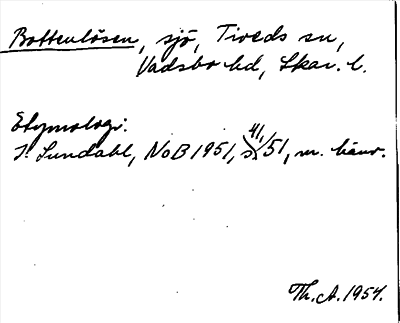 Bottenlösen, sjö, Tiveds sn,
Vadsbo hd, Skar. l.
Etymologi:
I. Lundahl, NoB 1951, s. 41, 51, m. hänv.
Th. A. 1954.